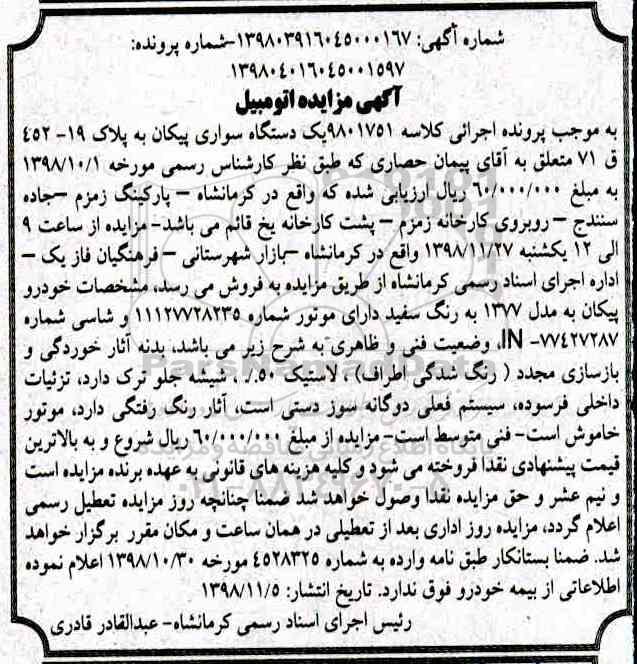 شماره آگهی: ۱۳۹۸۰۳۹۱۶۰۴۵۰۰۰۱۶۷-شماره پرونده:
۱۳۹۸۰۴۰۱۶۰۴۵۰۰۱۵۹۷
آگهی مزایده اتومبیل
به موجب پرونده اجرائی کلاسه ۹۸۰۱۷۵۱یک دستگاه سواری پیکان به پلاک ۱۹- ۴۵۲
ق ۷۱ متعلق به آقای پیمان حصاری که طبق نظر کارشناس رسمی مورخه ۱۳۹۸/۱۰/۱
به مبلغ ۶۰/۰۰۰/۰۰۰ ریال ارزیابی شده که واقع در کرمانشاه – پارکینگ زمزم –جاده
سنندج – روبروی کارخانه زمزم – پشت کارخانه یخ قائم می باشد- مزایده از ساعت ۹
الی ۱۲ یکشنبه ۱۳۹۸/۱۱/۲۷ واقع در کرمانشاه –بازار شهرستانی – فرهنگیان فاز یک –
اداره اجرای اسناد رسمی کرمانشاه از طریق مزایده به فروش می رسد، مشخصات خودرو
پیکان به مدل ۱۳۷۷ به رنگ سفید دارای موتور شماره ۱۱۱۲۷۷۲۸۲۳۵ و شاسی شماره
۷۷۴۲۷۲۸۷- IN، وضعیت فنی و ظاهری به شرح زیر می باشد، بدنه آثار خوردگی و
بازسازی مجدد ( رنگ شدگی اطراف) ، لاستیک ۵۰٪ ، شیشه جلو ترک دارد، تزئینات
داخلی فرسوده، سیستم فعلی دوگانه سوز دستی است، آثار رنگ رفتگی دارد، موتور
خاموش است- فنی متوسط است- مزایده از مبلغ ۶۰/۰۰۰/۰۰۰ ریال شروع و به بالاترین
قیمت پیشنهادی نقدا فروخته می شود و کلیه هزینه های قانونی به عهده برنده مزایده است
و نیم عشر و حق مزایده نقدا وصول خواهد شد ضمنا چنانچه روز مزایده تعطیل رسمی
اعلام گردد، مزایده روز اداری بعد از تعطیلی در همان ساعت و مکان مقرر برگزار خواهد
شد. ضمنا بستانکار طبق نامه وارده به شماره ۴۵۲۸۳۲۵ مورخه ۱۳۹۸/۱۰/۳۰ اعلام نموده
اطلاعاتی از بیمه خودرو فوق ندارد. تاریخ انتشار: ۱۳۹۸/۱۱/۵
رئیس اجرای اسناد رسمی کرمانشاه- عبدالقادر قادری
ParsNamadData